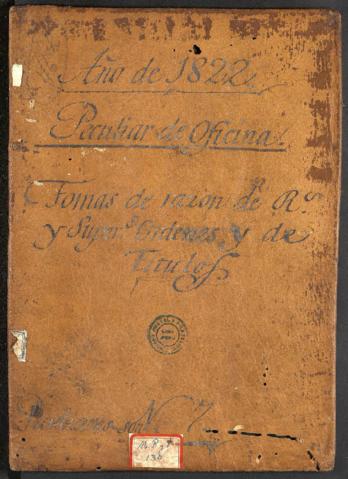 Año de 1822.
Peculiar de Oficina.
Tomas de razon de Rs.
y Super.s Ordenes, y de
Titulos
No. 7